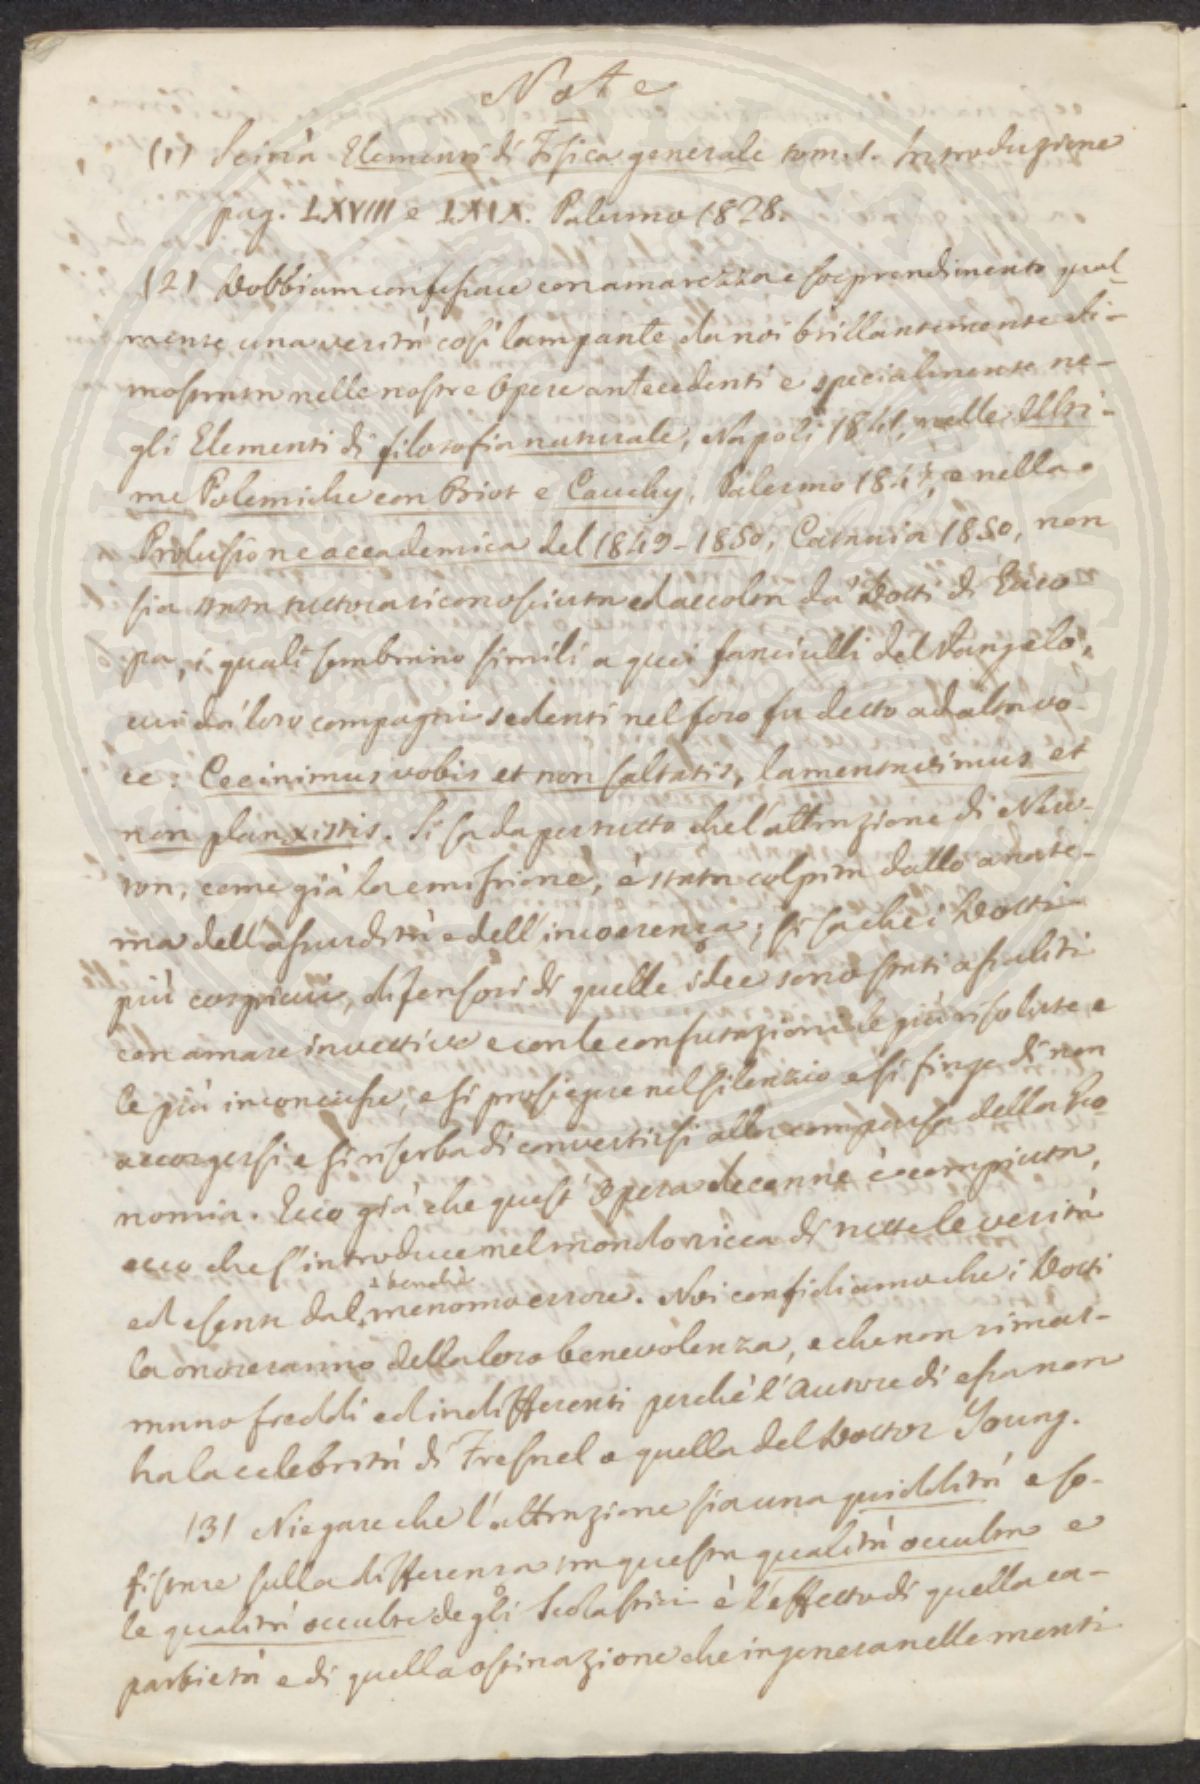 Note
(1) Scinà Elementi di Fisica generale tom. 1. Introduzione
pag. LXVIII e LXIX. Palermo 1828.
(2) Dobbiam confessare con amarezza e sorprendimento qual-
mente una verità così lampante da noi brillantemente di-
mostrata nelle nostre Opere antecedenti e specialmente ne-
gli Elementi di filosofia naturale, Napoli 1841, nelle Ulti-
me Polemiche con Biot e Cauchy, Palermo 1847, e nella
Prolusione accademica del 1849-1850, Catania 1850, non
sia stata tuttora riconosciuta ed accolta da' Dotti di Euro
pa, i quali sembrano simili a quei fanciulli del Vangelo,
cui da' loro compagni sedenti nel foro fu detto ad alta vo-
ce: Cecinimus vobis et non saltatis, lamentavimus et
non planxistis. Si sa dapertutto che l'attrazione di New-
ton, come già la emissione, è stata colpita dallo anate-
ma dell'assurdità e dell'incoerenza; si sa che i Dotti
più cospicui, difensori di quelle idee sono stati assaliti
con amare invettive e con le confutazioni le più risolute e
le più inconcusse, e si prosiegue nel silenzio e si finge di non
accorgersi e si riserba di convertirsi alla comparsa della
nomia. Ecco già che quest'Opera decenne è compiuta,
ecco che s'introduce nel mondo ricca di tutte le verità
ed esente dal benchè menomo errore. Noi confidiamo che i Dotti
la onoreranno della loro benevolenza, e che non rimar-
ranno freddi ed indifferenti perchè l'Autore di essa non
ha la celebrità di Fresnel o quella del Dottor Young.
(3) Niegare che l'attrazione sia una quiddità e so-
fistare sulla differenza tra questa qualità occulta e
le qualità occulte degli Scolastici è l'effetto di quella ca-
parbietà e di quella ostinazione che ingenera nelle menti